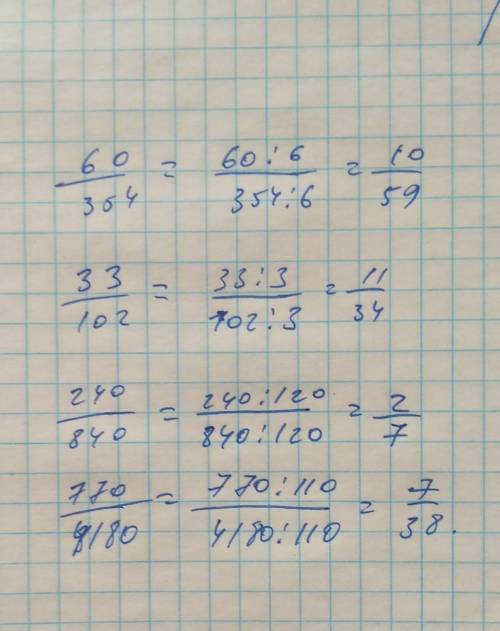 60/354 = 60:6/354:6 = 10/59
33/102 = 33:3/102:3 = 11/34
240/840 = 240:120/840:120 = 2/7
770/4180 = 770:110/4180:110 = 7/38.